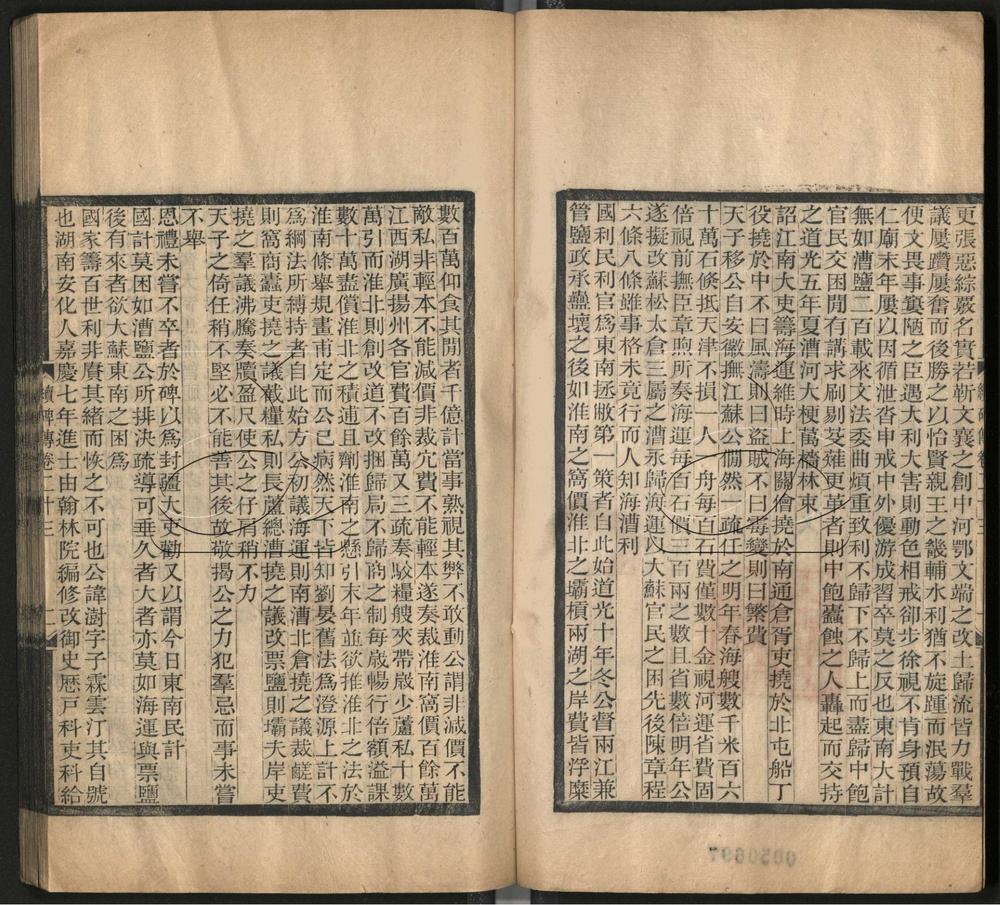 更張惡綜覈名實若靳文襄之創中河鄂文端之改土歸流皆力戰羣
議屢躓屢奮而後勝之以怡賢親王之畿輔水利猶不旋踵而泯蕩故
便文畏事窶陋之臣遇大利大害則動色相戒卻步徐視不肯身預自
仁廟末年屢以因循泄沓申戒中外優游成習卒莫之反也東南大計
無如漕鹽二百載來文法委曲煩重致利不歸下不歸上而盡歸中飽
官民交困閒有講求刷剔芟薙更革者則中飽蠹蝕之人轟起而交持
之道光五年夏漕河大梗萬檣林束
詔江南大吏籌海運維時上海關儈撓於南通倉胥吏撓於北屯船丁
役撓於中不曰風濤則曰盜賊不曰霉變則曰繁費
天子移公自安徽撫江蘇公㵎然一疏任之明年春海艘數千米百六
十萬石倏抵天津不損一人一舟每百石費僅數十金視河運省費固
倍視前撫臣章煦所奏海運每百石價三百兩之數且省數倍明年公
遂擬改蘇松太倉三屬之漕永歸海運以大蘇官民之困先後陳章程
六條八條雖事格未竟行而人知海漕利
國利民利官爲東南拯敝第一策者自此始道光十年冬公督兩江兼
管鹽政承蠱壞之後如淮南之窩價淮北之壩槓兩湖之岸費皆浮糜
數百萬仰食其閒者千億計當事熟視其弊不敢動公謂非減價不能
敵私非輕本不能減價非裁冗費不能輕本遂奏裁淮南窩價百餘萬
江西湖廣揚州各官費百餘萬又三疏奏駁糧艘夾帶嵗少蘆私十數
萬引而淮北則創改道不改捆歸局不歸商之制每嵗暢行倍額溢課
數十萬盡償淮北之積逋且劑淮南之懸引末年並欲推淮北之法於
淮南條舉規畫甫定而公已病然天下皆知劉晏舊法爲澄源上計不
爲綱法所縛持者自此始方公初議海運則南漕北倉撓之議裁鹺費
則窩商蠹吏撓之議截糧私則長蘆總漕撓之議改票鹽則壩夫岸吏
撓之羣議沸騰奏牘盈尺使公之仔肩稍不力
天子之倚任稍不堅必不能善其後故敬揭公之力犯羣忌而事未嘗
不舉
恩禮未嘗不卒者於碑以爲封疆大吏勸又以謂今日東南民計
國計莫困如漕鹽公所排決疏導可垂久者大者亦莫如海運與票鹽
後有來者欲大蘇東南之困爲
國家籌百世利非賡其緒而恢之不可也公諱澍字子霖雲汀其自號
也湖南安化人嘉慶七年進士由翰林院編修改御史歷戸科吏科給
續碑傳卷二十三
二
0050697